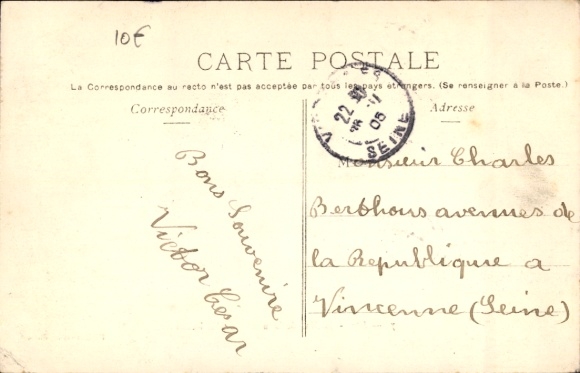 10€
CARTE POSTALE
La Correspondance au recto n'est pas acceptée par tous les pays étrangers. (Se renseigner à la Poste.)
Correspondance
Adresse
22
05
SEINE
Bons Souvenire
Victor César
Monsieur Charles
Berthous avennes de
la Republique a
Vincenne (Seine)